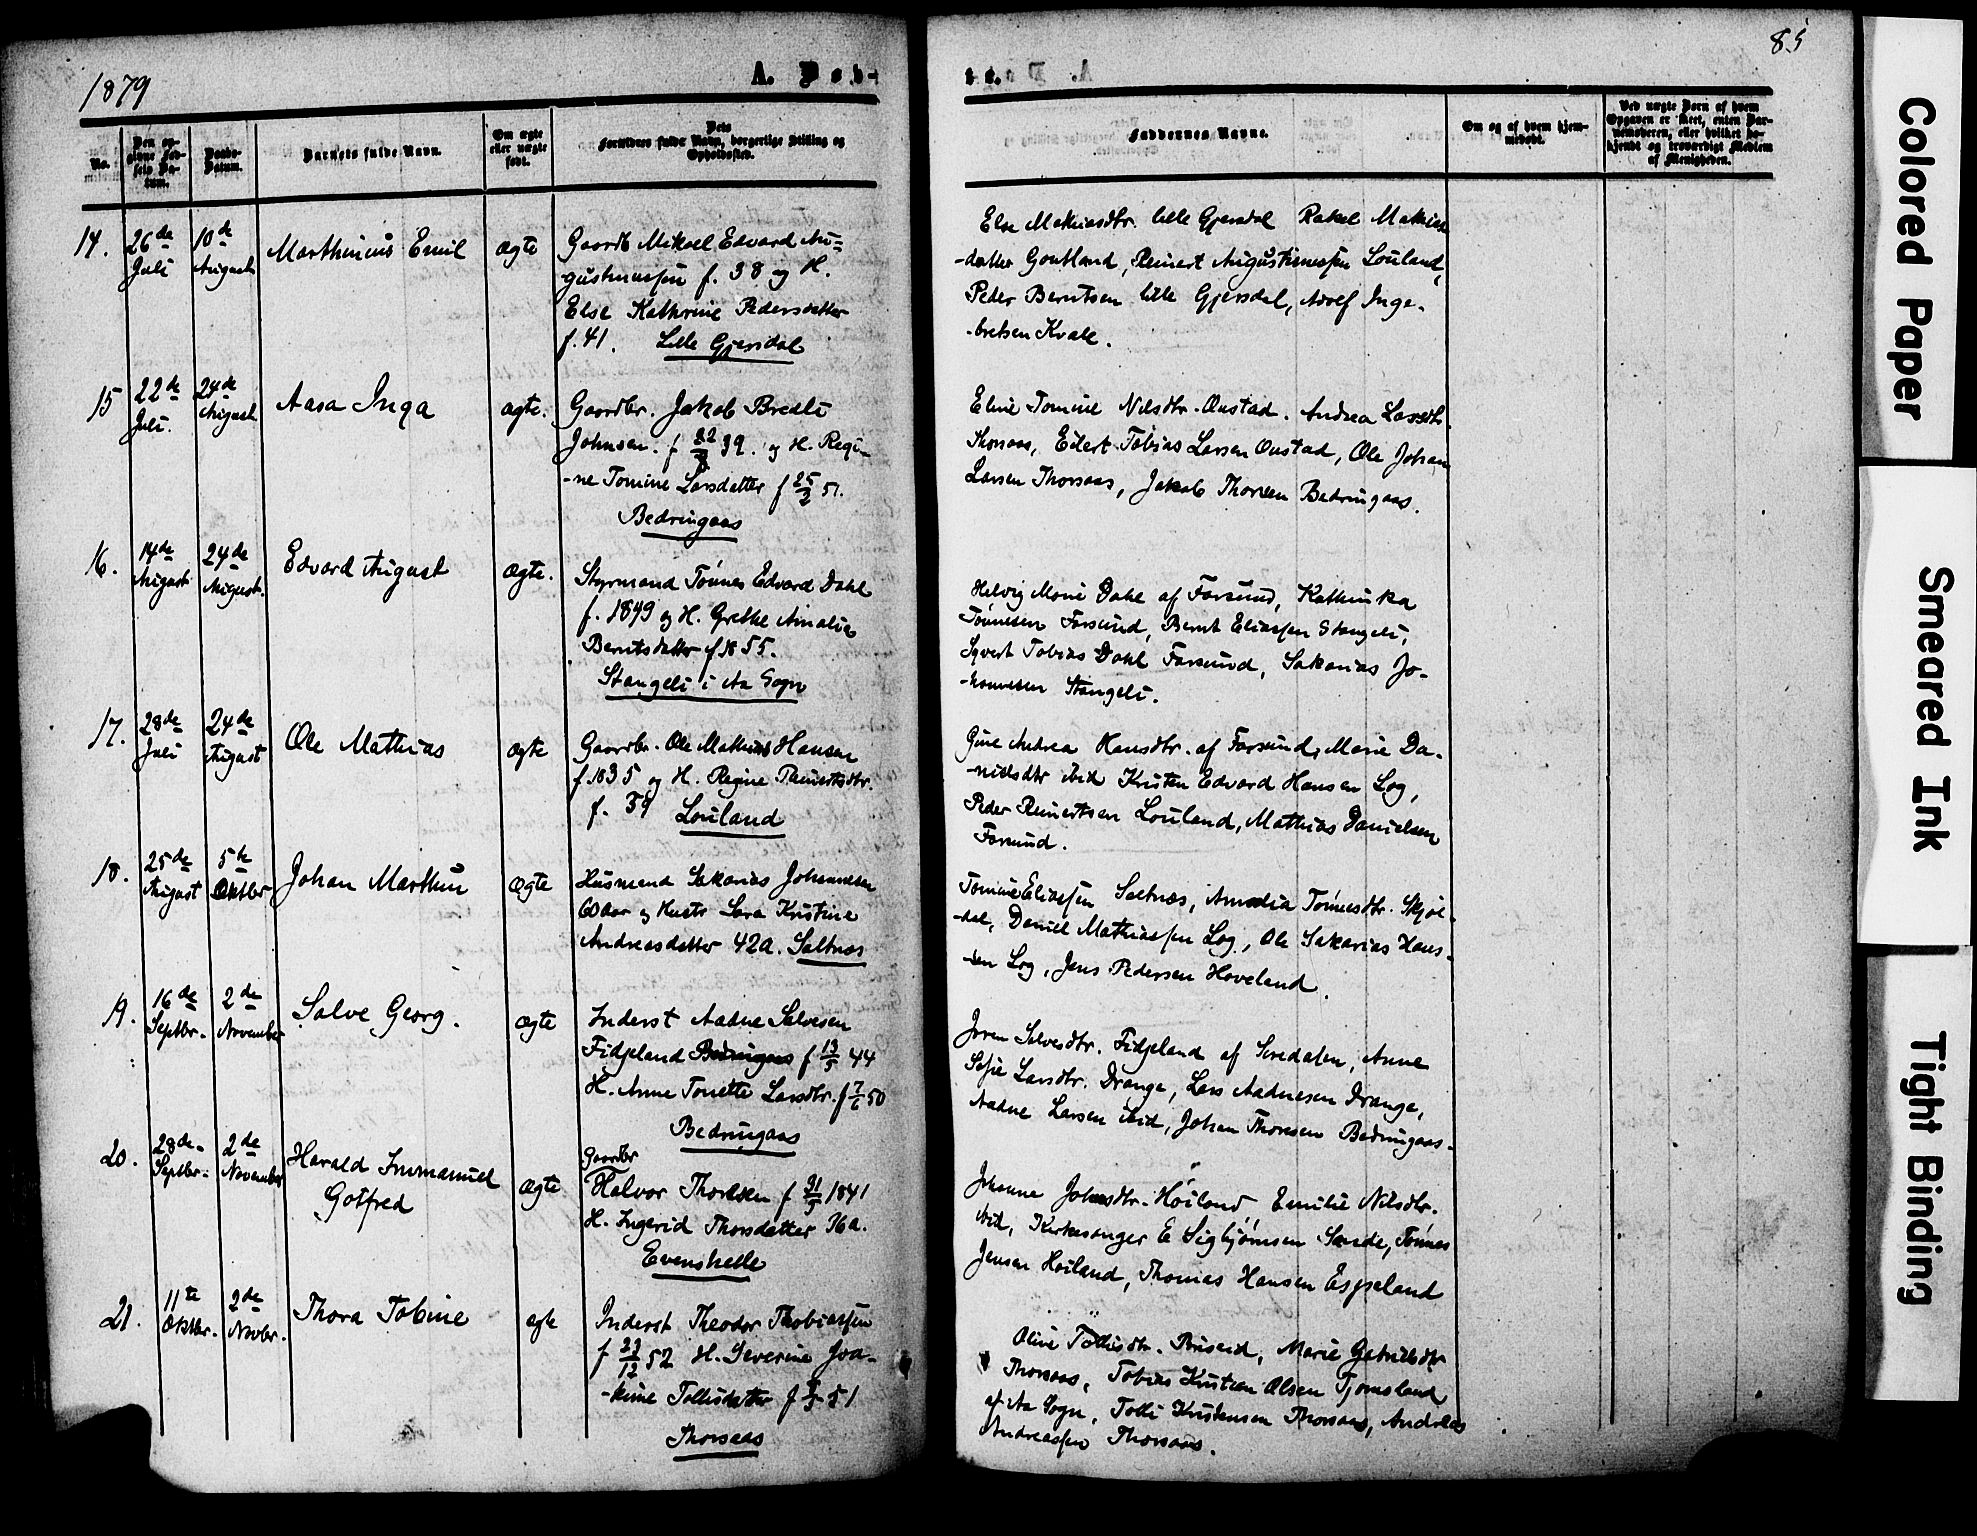 1879
A. Fød-
No.
Den op-
givne Fød-
sels Da-
tum.
Daabs-
Datum.
Barnets fulde Navn.
Om ægte
eller uægte
født.
Dets
Forældres fulde Navn, borgerlige Stilling og
Opholdssted.
14.
26de
Juli
10de
August
Marthinius Emil
ægte
Gaardb. Mikael Edvard Au=
gustinussen f. 38 og H.
Else Kathrine Pedersdatter
f. 41. Lille Gjersdal
15
22de
Juli.
24de
August
Aasa Inga
ægte.
Gaardbr. Jakob Bredli
Johnsen. f 39. og H. Regi-
-ne Tomine Larsdatter f 25/2 51.
Bedringaas
16.
14de
August
24de
August.
Edvard August
ægte.
Styrmand Tønnes Edvard Dahl
f. 1849 og H. Grethe Amalie
Berntsdatter f 1855.
Stangeli i Aa Sogn
17.
28de
Juli
24de
August
Ole Mathias
ægte
Gaardbr. Ole Mathias Hansen
f. 1835 og H. Regine Reinertsdtr.
f. 39 Louland
18.
25de
August
5te
Oktbr
Johan Marthin
ægte
Husmand Sakarias Johannesen
60 aar og Hustr Sara Kristine
Andreasdatter 42a. Saltnæs
19.
16de
Septbr.
2de
November
Salve Georg.
ægte
Inderst Aadne Salvesen
Fidjeland Bedringaas f 13/5 44
H. Anne Tonette Larsdtr. f 7/6 50
Bedringaas
20.
28de.
Septbr.
2de
November
Harald Immanuel
Gotfred
ægte
Gaardbr
Halvor Thorsen f 1841
H. Ingerid Thorsdatter 36a.
Evenshelle
21.
11te
Oktbr.
2de
Novbr.
Thora Tobine
ægte
Inderst Theodor Thobiassen
f 23/12 52 H. Severine Joa-
-kime Tollisdatter f 51
Thorsaas
te.
85
Faddernes Navne.
Om og af hvem hjem-
medøbt.
Ved uægte Børn af hvem
Opgaven er skeet, enten Bar-
nemoderen, eller hvilket be-
kjendt og troværdigt Medlem
af Menigheden.
Else Mathiasdtr. lille Gjersdal Rakel Mathias
-datter Goutland, Reinert Augustinussen Louland,
Peder Berntsen lille Gjersdal, Adolf Inge-
-bretsen Kvale.
Eline Tomine Nilsdtr. Oustad. Andrea Larsdtr.
Thorsaas, Eilert Tobias Larsen Oustad, Ole Johan
Larsen Thorsaas, Jakob Thorsen Bedringaas.
Helvig Marie Dahl af Farsund, Kathinka
Tønnesen Farsund, Bernt Eliassen Stangeli,
Syvert Tobias Dahl Farsund, Sakarias Jo-
-hannesen Stangeli.
Gine Andrea Hansdtr. af Farsund, Marie Da-
-nielsdtr ibid Kristen Edvard Hansen Log,
Peder Reinertsen Louland, Mathias Danielsen
Farsund.
Tomine Eliassen Saltnæs, Amalia Tønnesdtr. Skjøl-
-dal, Daniel Mathiassen Log, Ole Sakarias Hans-
-sen Log, Jens Pedersen Hoveland.
Joren Salvesdtr. Fidjeland af Siredalen, Anne
Sofie Larsdtr. Drange, Lars Aadnesen Drange,
Aadne Larsen ibid, Johan Thorsen Bedringaas.
Johanne Johnsdtr. Høiland, Emilie Nilsdtr.
ibid, Kirkesanger E Sigbjørnsen Sande, Tønnes
Jensen Høiland, Thomas Hansen Espeland
Oline Tollisdtr. Briseid, Marie Gabrielsdtr
Thorsaas, Tobias Kristian Olsen Tjomsland
af Aa Sogn, Tolli Kristensen Thorsaas, Andreas
Andreassen Thorsaas.
Colored Paper
Smeared Ink
Tight Binding